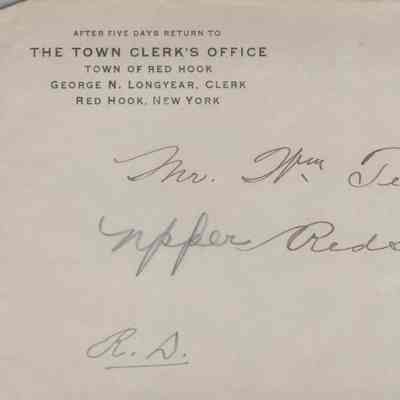 AFTER FIVE DAYS RETURN TO
THE TOWN CLERK'S OFFICE
TOWN OF RED HOOK
GEORGE N. LONGYEAR, CLERK
RED HOOK, NEW YORK
Mr. Wm Te
Upper Red
R. D.